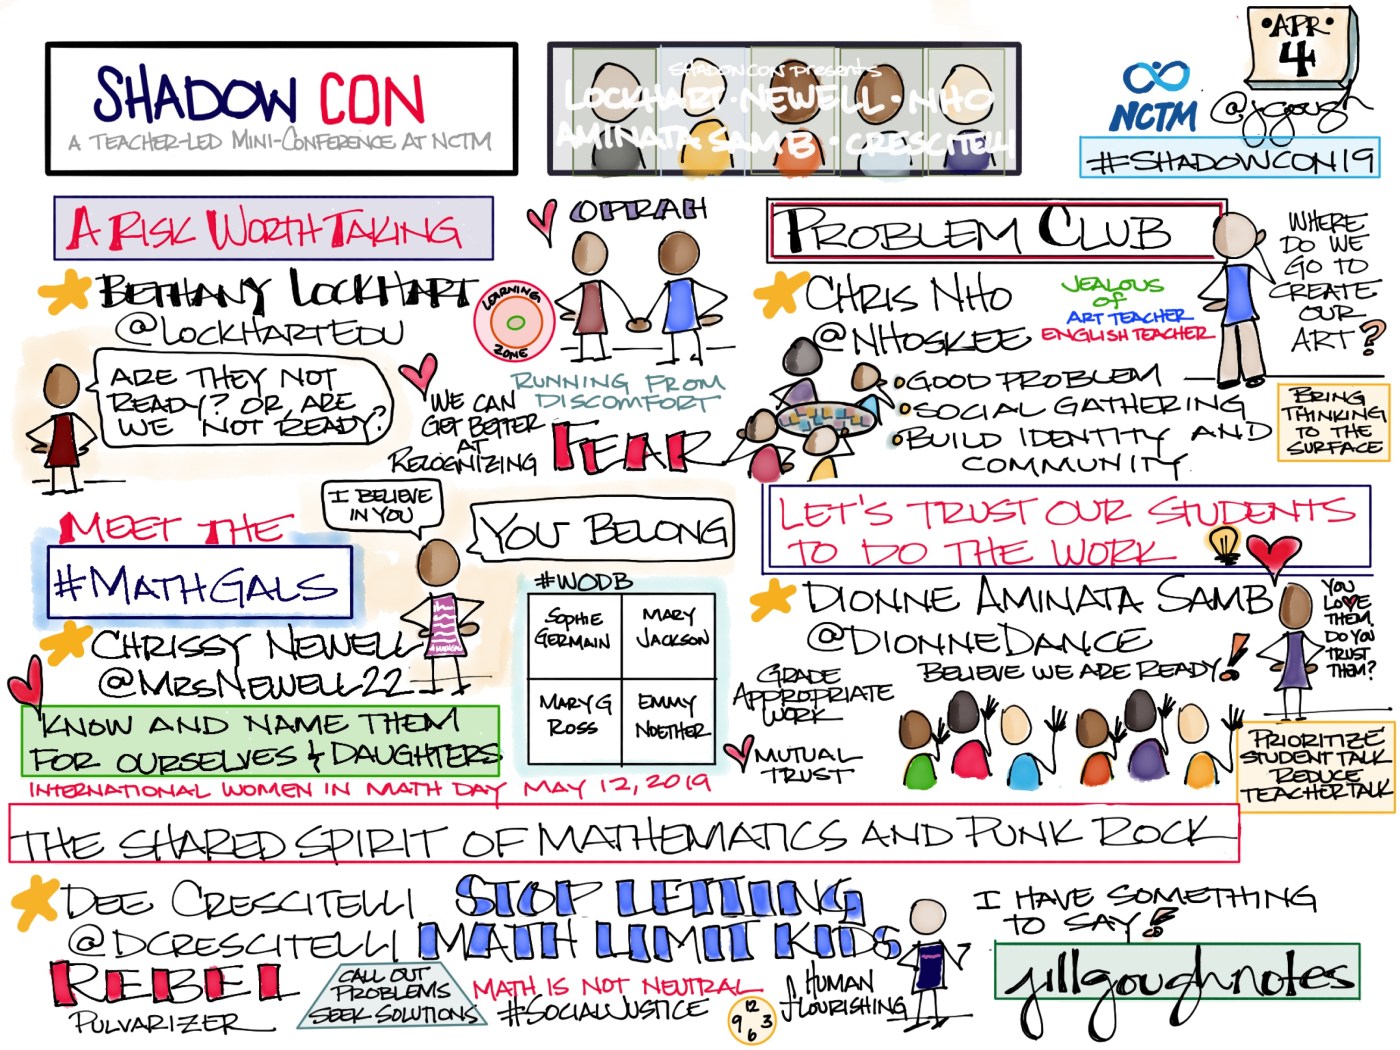 SHADOW CON
A TEACHER-LED MINI-CONFERENCE AT NCTM
SHADOWCON presents
LOCKHART · NEWELL · NHO
AMINATA SAMB · CRESCITELLI
NCTM
•APR•
4
@jgough
#SHADOWCON19
A RISK WORTH TAKING
BETHANY LOCKHART
@LOCKHARTEDU
ARE THEY NOT
READY? OR ARE
WE NOT READY?
OPRAH
LEARNING
ZONE
RUNNING FROM
DISCOMFORT
WE CAN
GET BETTER
AT
RECOGNIZING
FEAR
PROBLEM CLUB
CHRIS NHO
@NHOSKEE
JEALOUS
OF
ART TEACHER
ENGLISH TEACHER
WHERE
DO WE
GO TO
CREATE
OUR
ART?
GOOD PROBLEM
SOCIAL GATHERING
BUILD IDENTITY AND
COMMUNITY
BRING
THINKING
TO THE
SURFACE
MEET THE
#MATHGALS
CHRISSY NEWELL
@MRSNEWELL22
I BELIEVE
IN YOU
YOU BELONG
#WODB
SOPHIE
GERMAIN
MARY
JACKSON
MARY G
ROSS
EMMY
NOETHER
KNOW AND NAME THEM
FOR OURSELVES & DAUGHTERS
INTERNATIONAL WOMEN IN MATH DAY MAY 12, 2019
LET'S TRUST OUR STUDENTS
TO DO THE WORK
DIONNE AMINATA SAMB
@DIONNEDANCE
BELIEVE WE ARE READY!
GRADE
APPROPRIATE
WORK
MUTUAL
TRUST
YOU
LOVE
THEM.
DO YOU
TRUST
THEM?
PRIORITIZE
STUDENT TALK
REDUCE
TEACHER TALK
THE SHARED SPIRIT OF MATHEMATICS AND PUNK ROCK
DEE CRESCITELLI
@DCRESCITELLI
REBEL
PULVARIZER
STOP LETTING
MATH LIMIT KIDS
CALL OUT
PROBLEMS
SEEK SOLUTIONS
MATH IS NOT NEUTRAL
#SOCIALJUSTICE
12
9 3
6
HUMAN
FLOURISHING
I HAVE SOMETHING
TO SAY!
jillgoughnotes